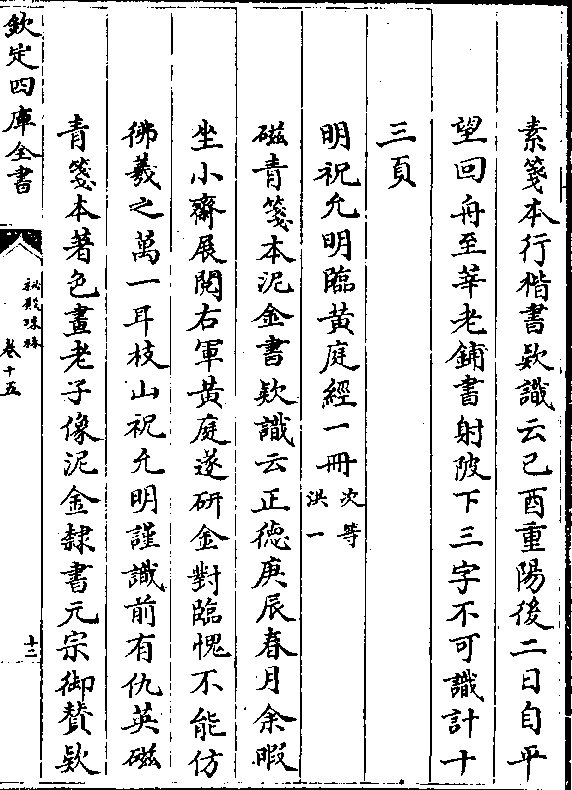 素箋本行楷書欵識云己酉重陽後二日自平
望回舟至華老鋪書射陂下三字不可識計十
三頁
明祝允明臨黃庭經一冊次等洪一
磁青箋本泥金書欵識云正德庚辰春月余暇
坐小齋展閱右軍黃庭遂研金對臨愧不能仿
彿羲之萬一耳枝山祝允明謹識前有仇英磁
青箋本著色畫老子像泥金隸書元宗御贊欵
欽定四庫全書
秘殿珠林
卷十五
十三